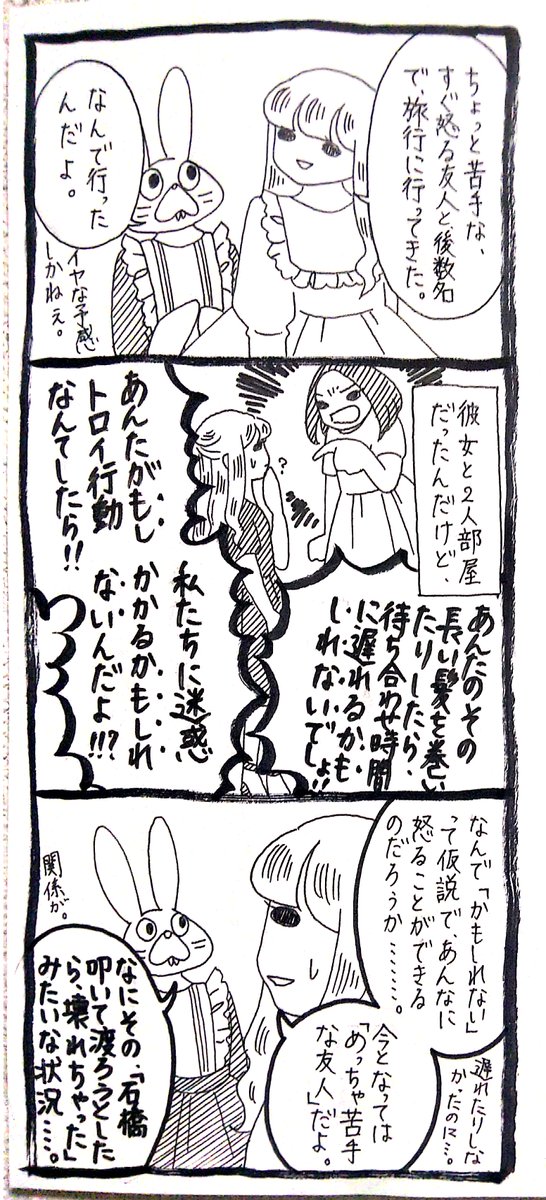 ちょっと苦手な、
すぐ怒る友人と、後数名
で、旅行に行ってきた。
なんで行った
んだよ。
イヤな予感
しかねぇ。
彼女と2人部屋
だったんだけど、
?
あんたのその
長い髪を巻い
たりしたら、
待ち合わせ時間
に遅れるかも
しれないでしょ!!
あんたがもし
トロイ行動
なんてしたら!!
私たちに迷惑
かかるかもしれ
ないんだよ!!?
なんで「かもしれない」
って仮説で、あんなに
怒ることができる
のだろうか……。
遅れたりしな
かったのに…。
今となっては
「めっちゃ苦手
な友人」だよ。
関係が。
なにその、「石橋
叩いて渡ろうとした
ら、壊れちゃった」
みたいな状況…。